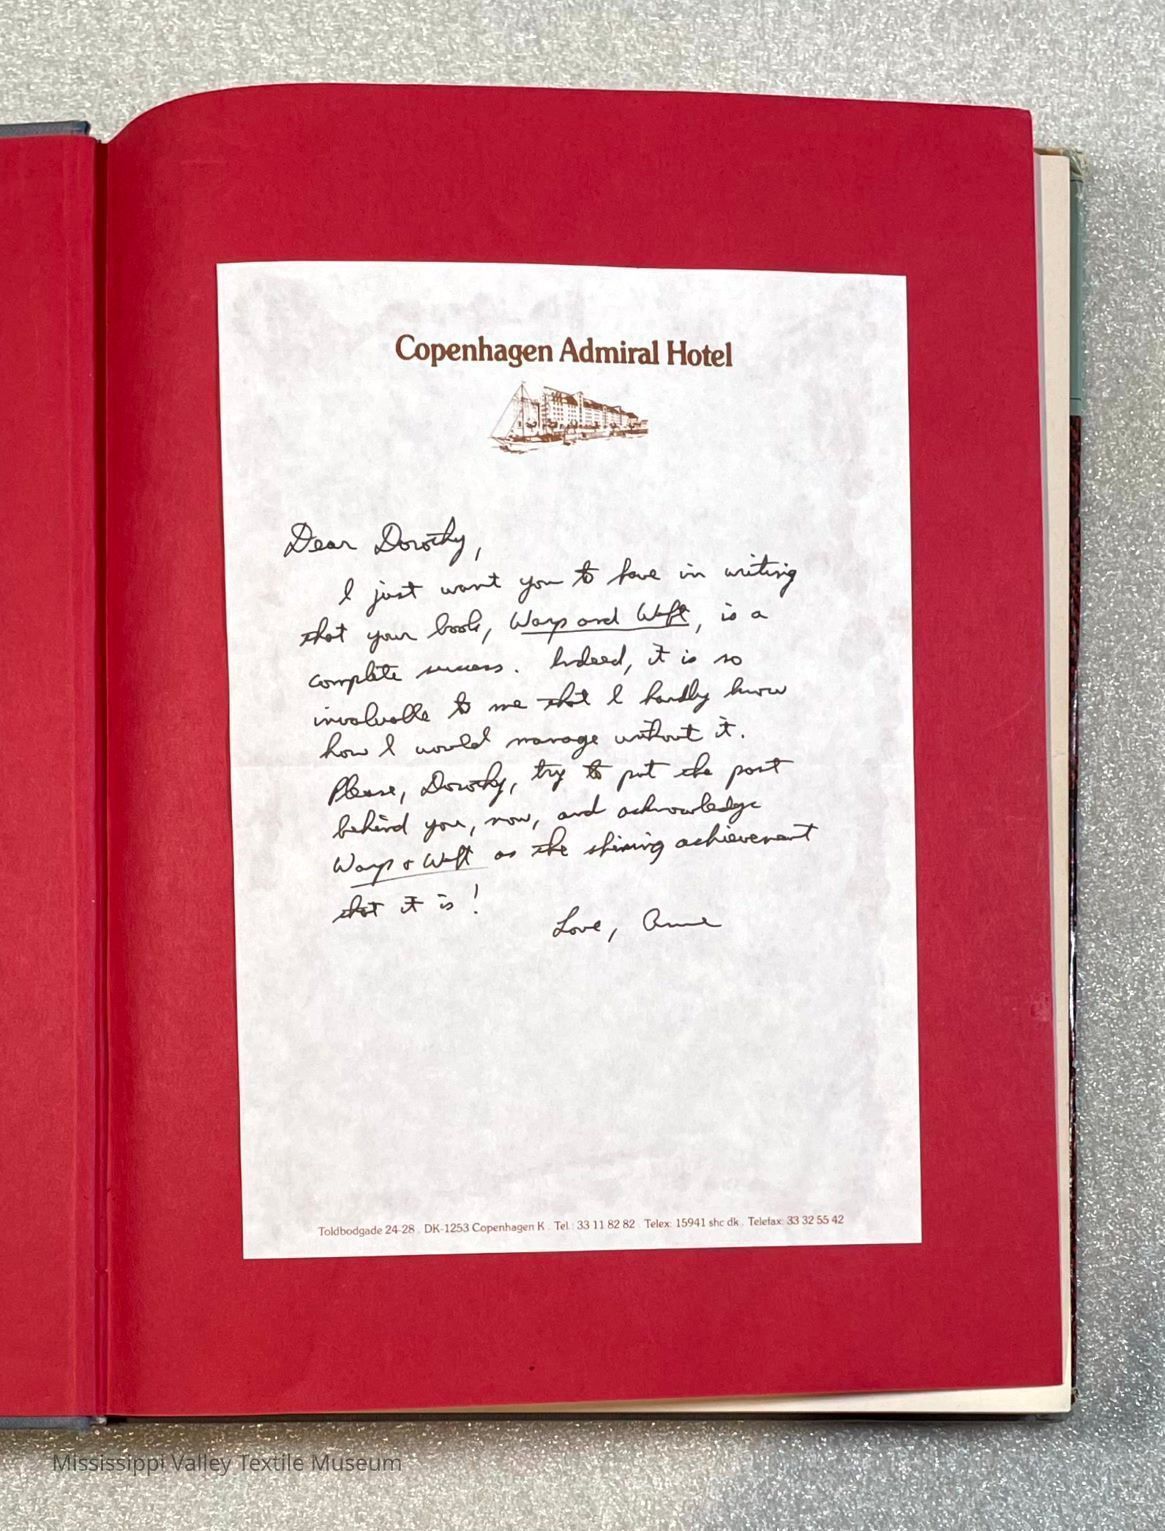 Copenhagen Admiral Hotel
Dear Dorothy,
I just want you to have in writing
that your book, Warp and Weft, is a
complete success. Indeed, it is so
invaluable to me that I hardly know
how I would manage without it.
Please, Dorothy, try to put the past
behind you, now, and acknowledge
Warp & Weft as the shining achievement
that it is!
Love, Anne
Toldbodgade 24-28 . DK-1253 Copenhagen K . Tel.: 33 11 82 82 . Telex: 15941 shc dk . Telefax: 33 32 55 42
Mississippi Valley Textile Museum